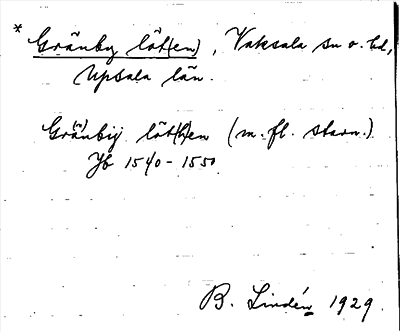 * Gränby löt(en), Vaksala sn o. hd,
Upsala län.
Grä(n)biy löt(h)en (m. fl. stavn.)
Jb 1540-1550.
B. Lindén 1929.